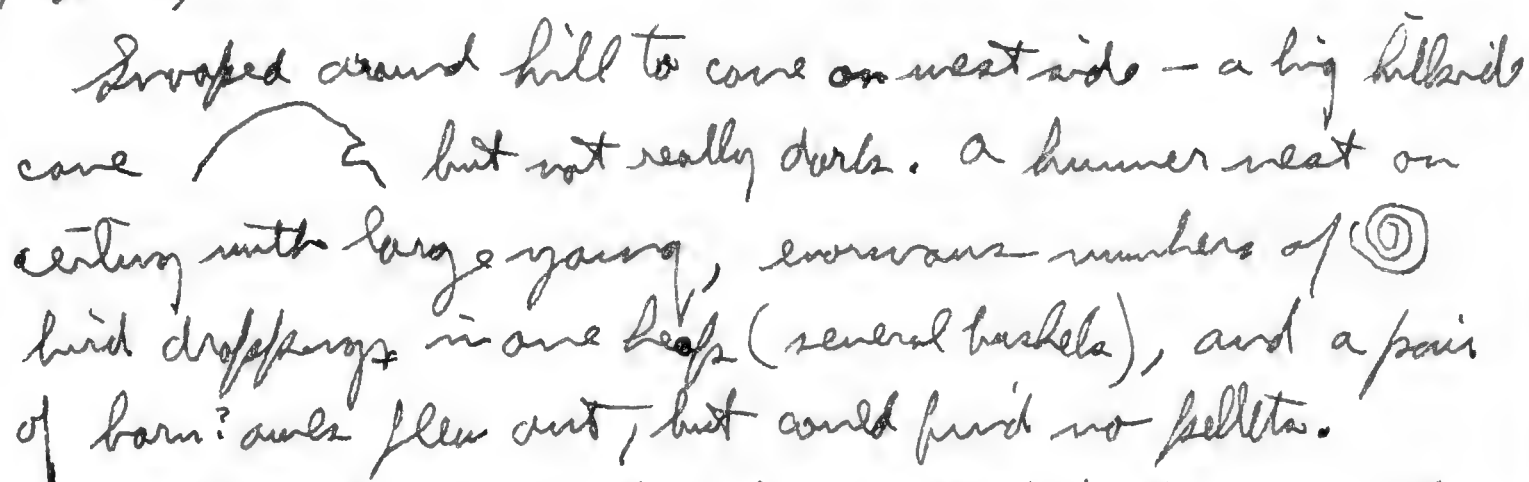 Swooped around hill to cave on west side – a big hillside
cave but not really dark. A hummer nest on
ceiling with large young, enormous numbers of
bird droppings in one heap (several bushels), and a pair
of barn? owls flew out, but could find no pellets.